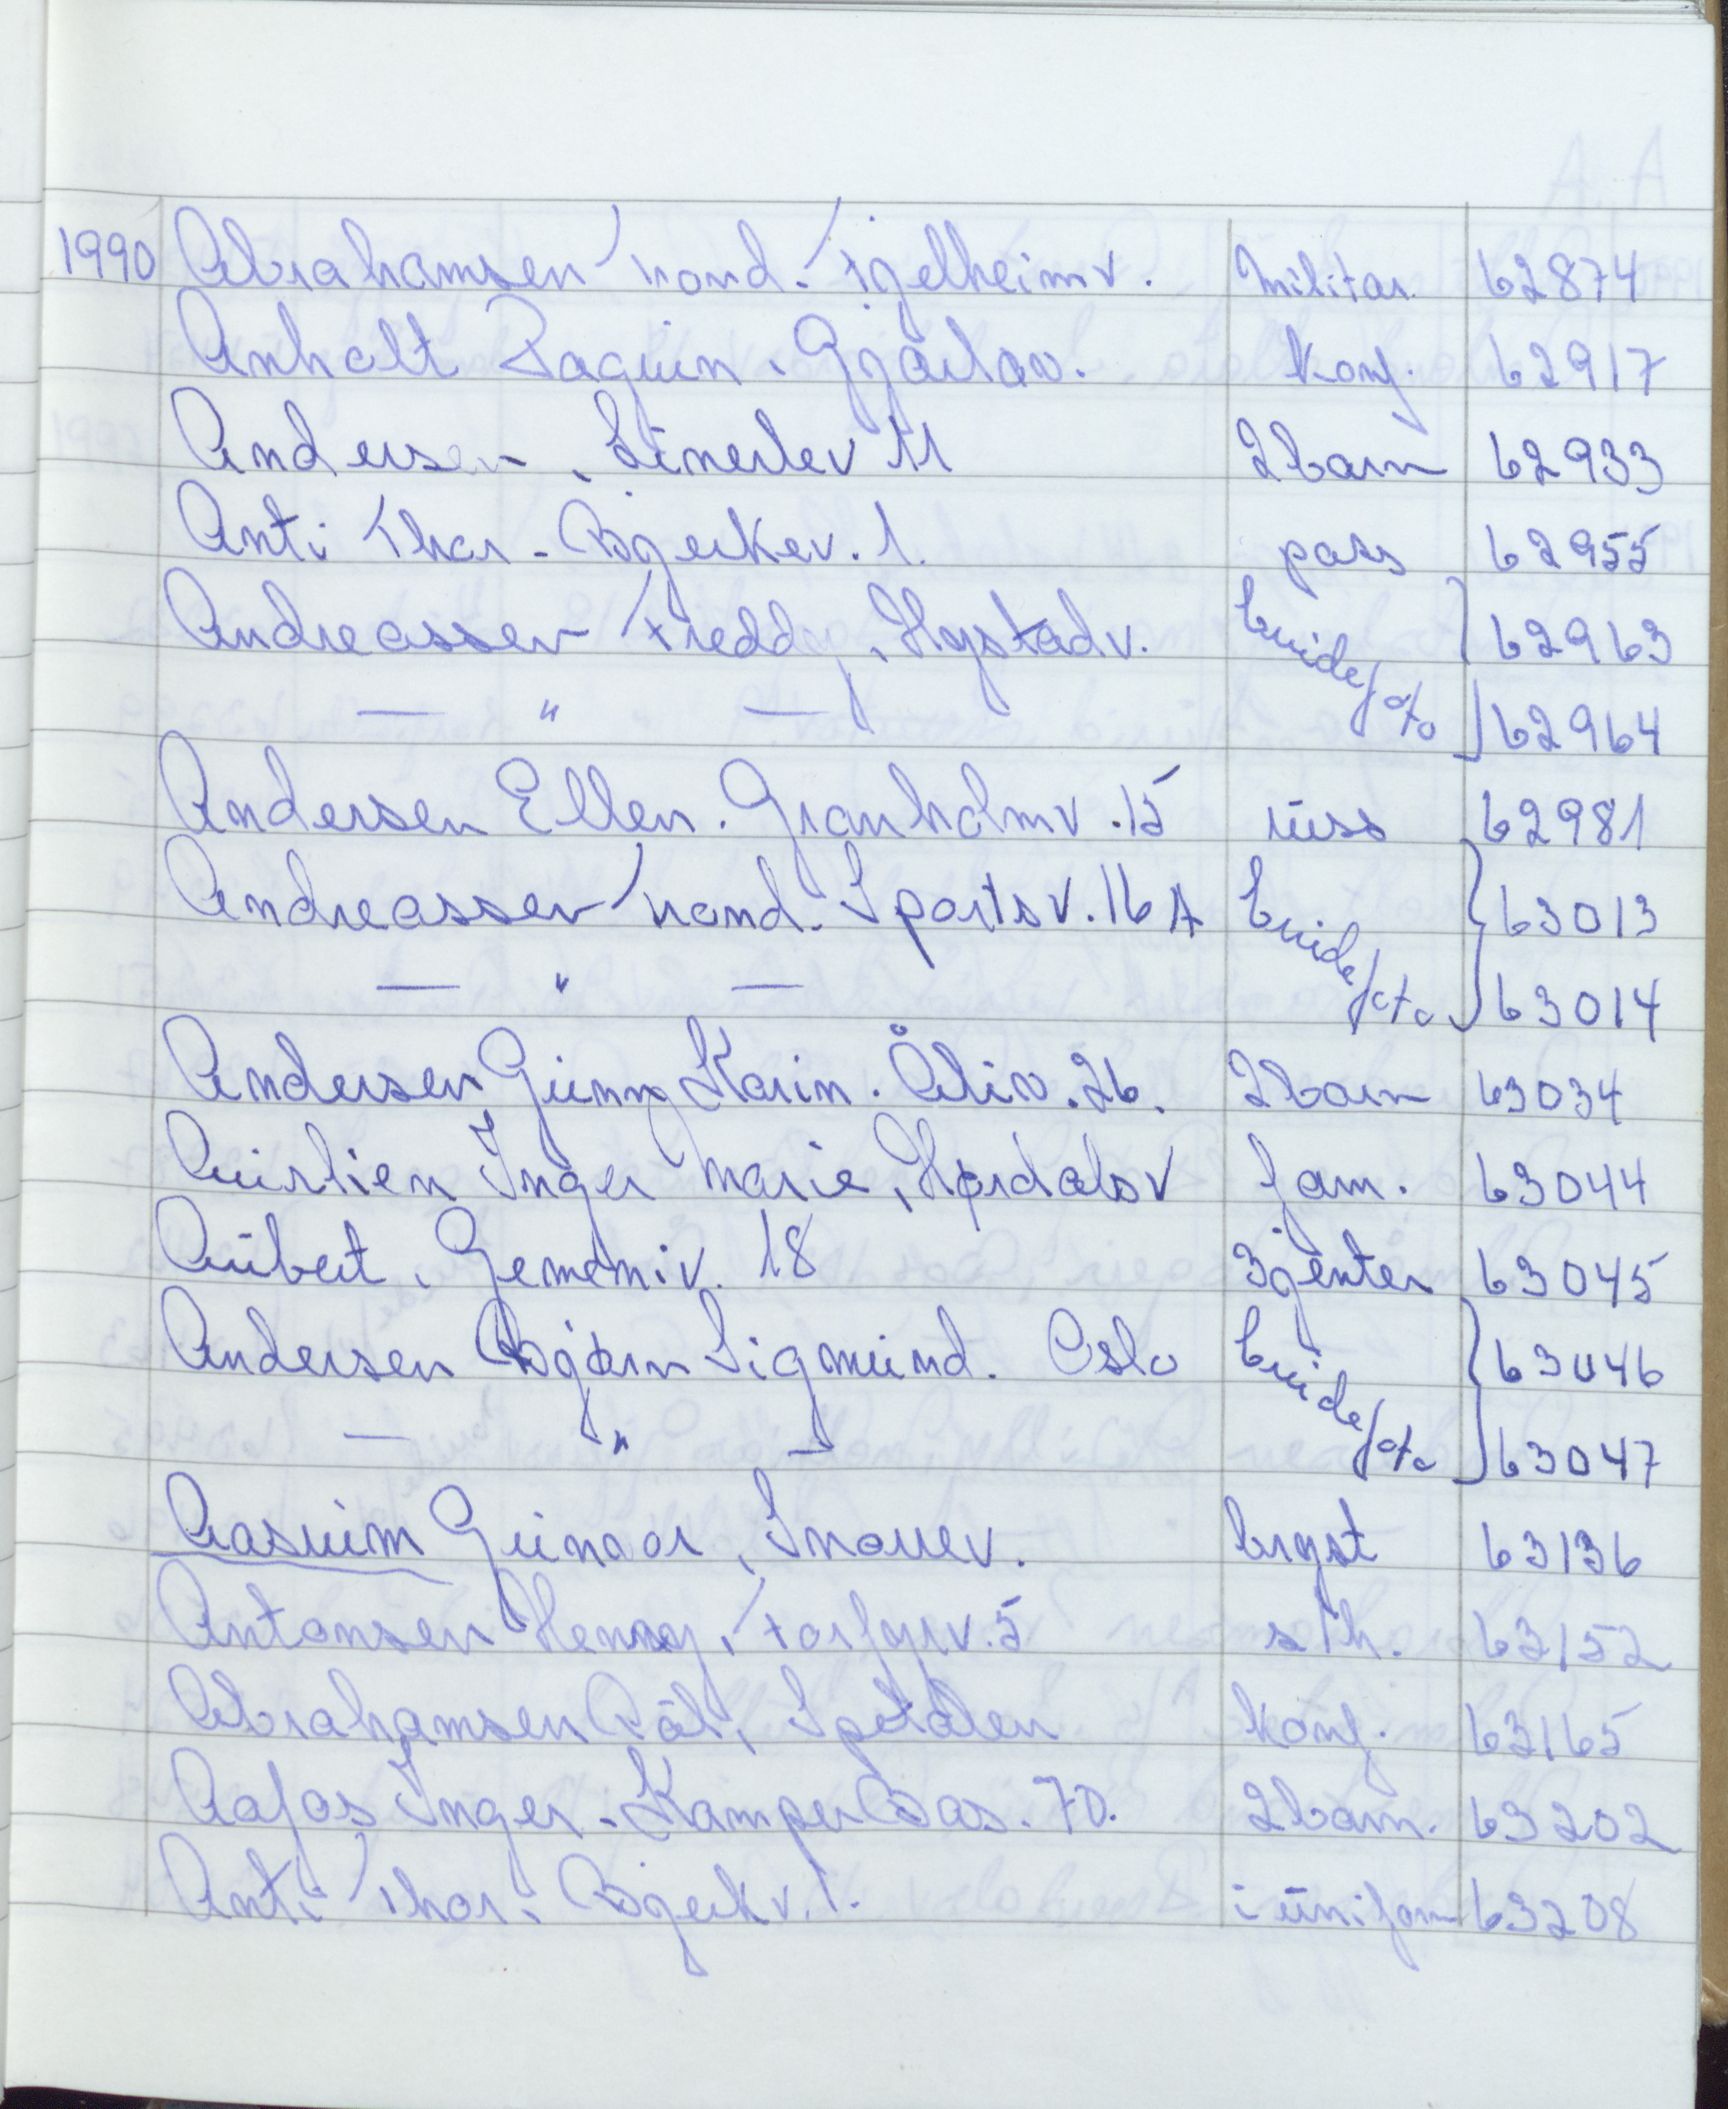 1990 Abrahamsen Trond. Fjellheimv. Militær. 62874
Anholt Gjærlav. konf. 62917
Andersen, Linerlev 11 2barn 62933
Anti Thor. Bjerkev. 1. pass 62955
Andreassen Freddy, Hystadv. brudefoto 62963
— " — 62964
Andersen Ellen. Granholmv. 15 russ 62981
Andreassen Trond. Sportsv. 16 A brudefoto 63013
— " — 63014
Andersen Gunny Karin. 26. 2barn 63034
Aurlien Inger Marie, Hørdalsv fam. 63044
Aubert, Gemeniv. 18 3jenter 63045
Andersen Bjørn Sigmund. Oslo brudefoto 63046
— " — 63047
Aasrum Gunnar, Snorrev. bryst 63136
Antonsen Henny, 5 s/h. 63152
Abrahamsen Pål, konf. 63165
Aafos Inger. Kamper Bas. 70. 2barn. 63202
Anti Thor. Bjerkv. 1. i uniform 63208